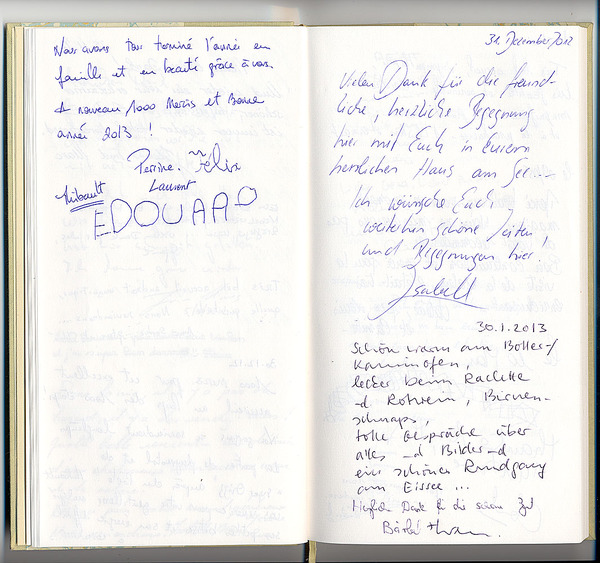 Nous avons tous terminé l'année en
famille et en beauté grâce à vous.
A nouveau 1000 Mercis et Bonne
année 2013 !
Perrine. Félix
Thibault Laurent
EDOUARD
31. Dezember 2012
Vielen Dank für die freund-
liche, herzliche Begegnung
hier mit Euch in Eurem
herrlichen Haus am See...
Ich wünsche Euch
weiterhin schöne Zeiten
und Begegnungen hier!
Isabell
30.1.2013
Schön warm am Boller-/
Kaminofen,
lecker beim Raclette
-d Rotwein, Birnen-
schnaps,
tolle Gespräche über
alles -d Bilder -d
ein schöner Rundgang
am Eissee ...
Herzlich Dank für die schöne Zeit
Bärbel +